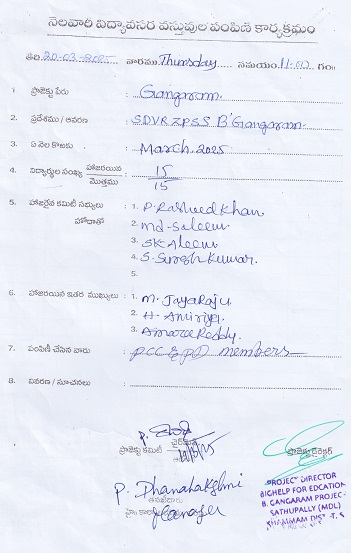 నెలవారీ విద్యావసర వస్తువుల పంపిణీ కార్యక్రమం
తేది 20-03-2025 వారము Thursday సమయం 11-00 గం॥
1 ప్రాజెక్టు పేరు : Gangaram.
2. ప్రదేశము / ఆవరణ : SDVR ZPSS B'Gangaram.
3 ఏ నెల కొరకు : March. 2025
4. విద్యార్థుల సంఖ్య హాజరయిన / మొత్తము : 15 / 15
5 హాజరైన కమిటీ సభ్యులు : 1. P. Rasheed Khan
హోదాతో 2. Md-Saleem
3. SK Aleem
4. S. Suresh Kumar.
5.
6. హాజరయిన ఇతర ముఖ్యులు : 1. M. Jayaraju
2. H.
3. Amarareddy.
7. పంపిణీ చేసిన వారు : PCC & PD members
8. వివరణ / సూచనలు :
ప్రాజెక్టు కమిటీ చైర్మన్
ప్రాజెక్టు డైరెక్టర్
P. Dhanalakshmi
PROJECT DIRECTOR
BIGHELP FOR EDCATION
B. GANGARAM PROJEC-
SATHUPALLY (MDL)
KHAMMAM DIST-T.S